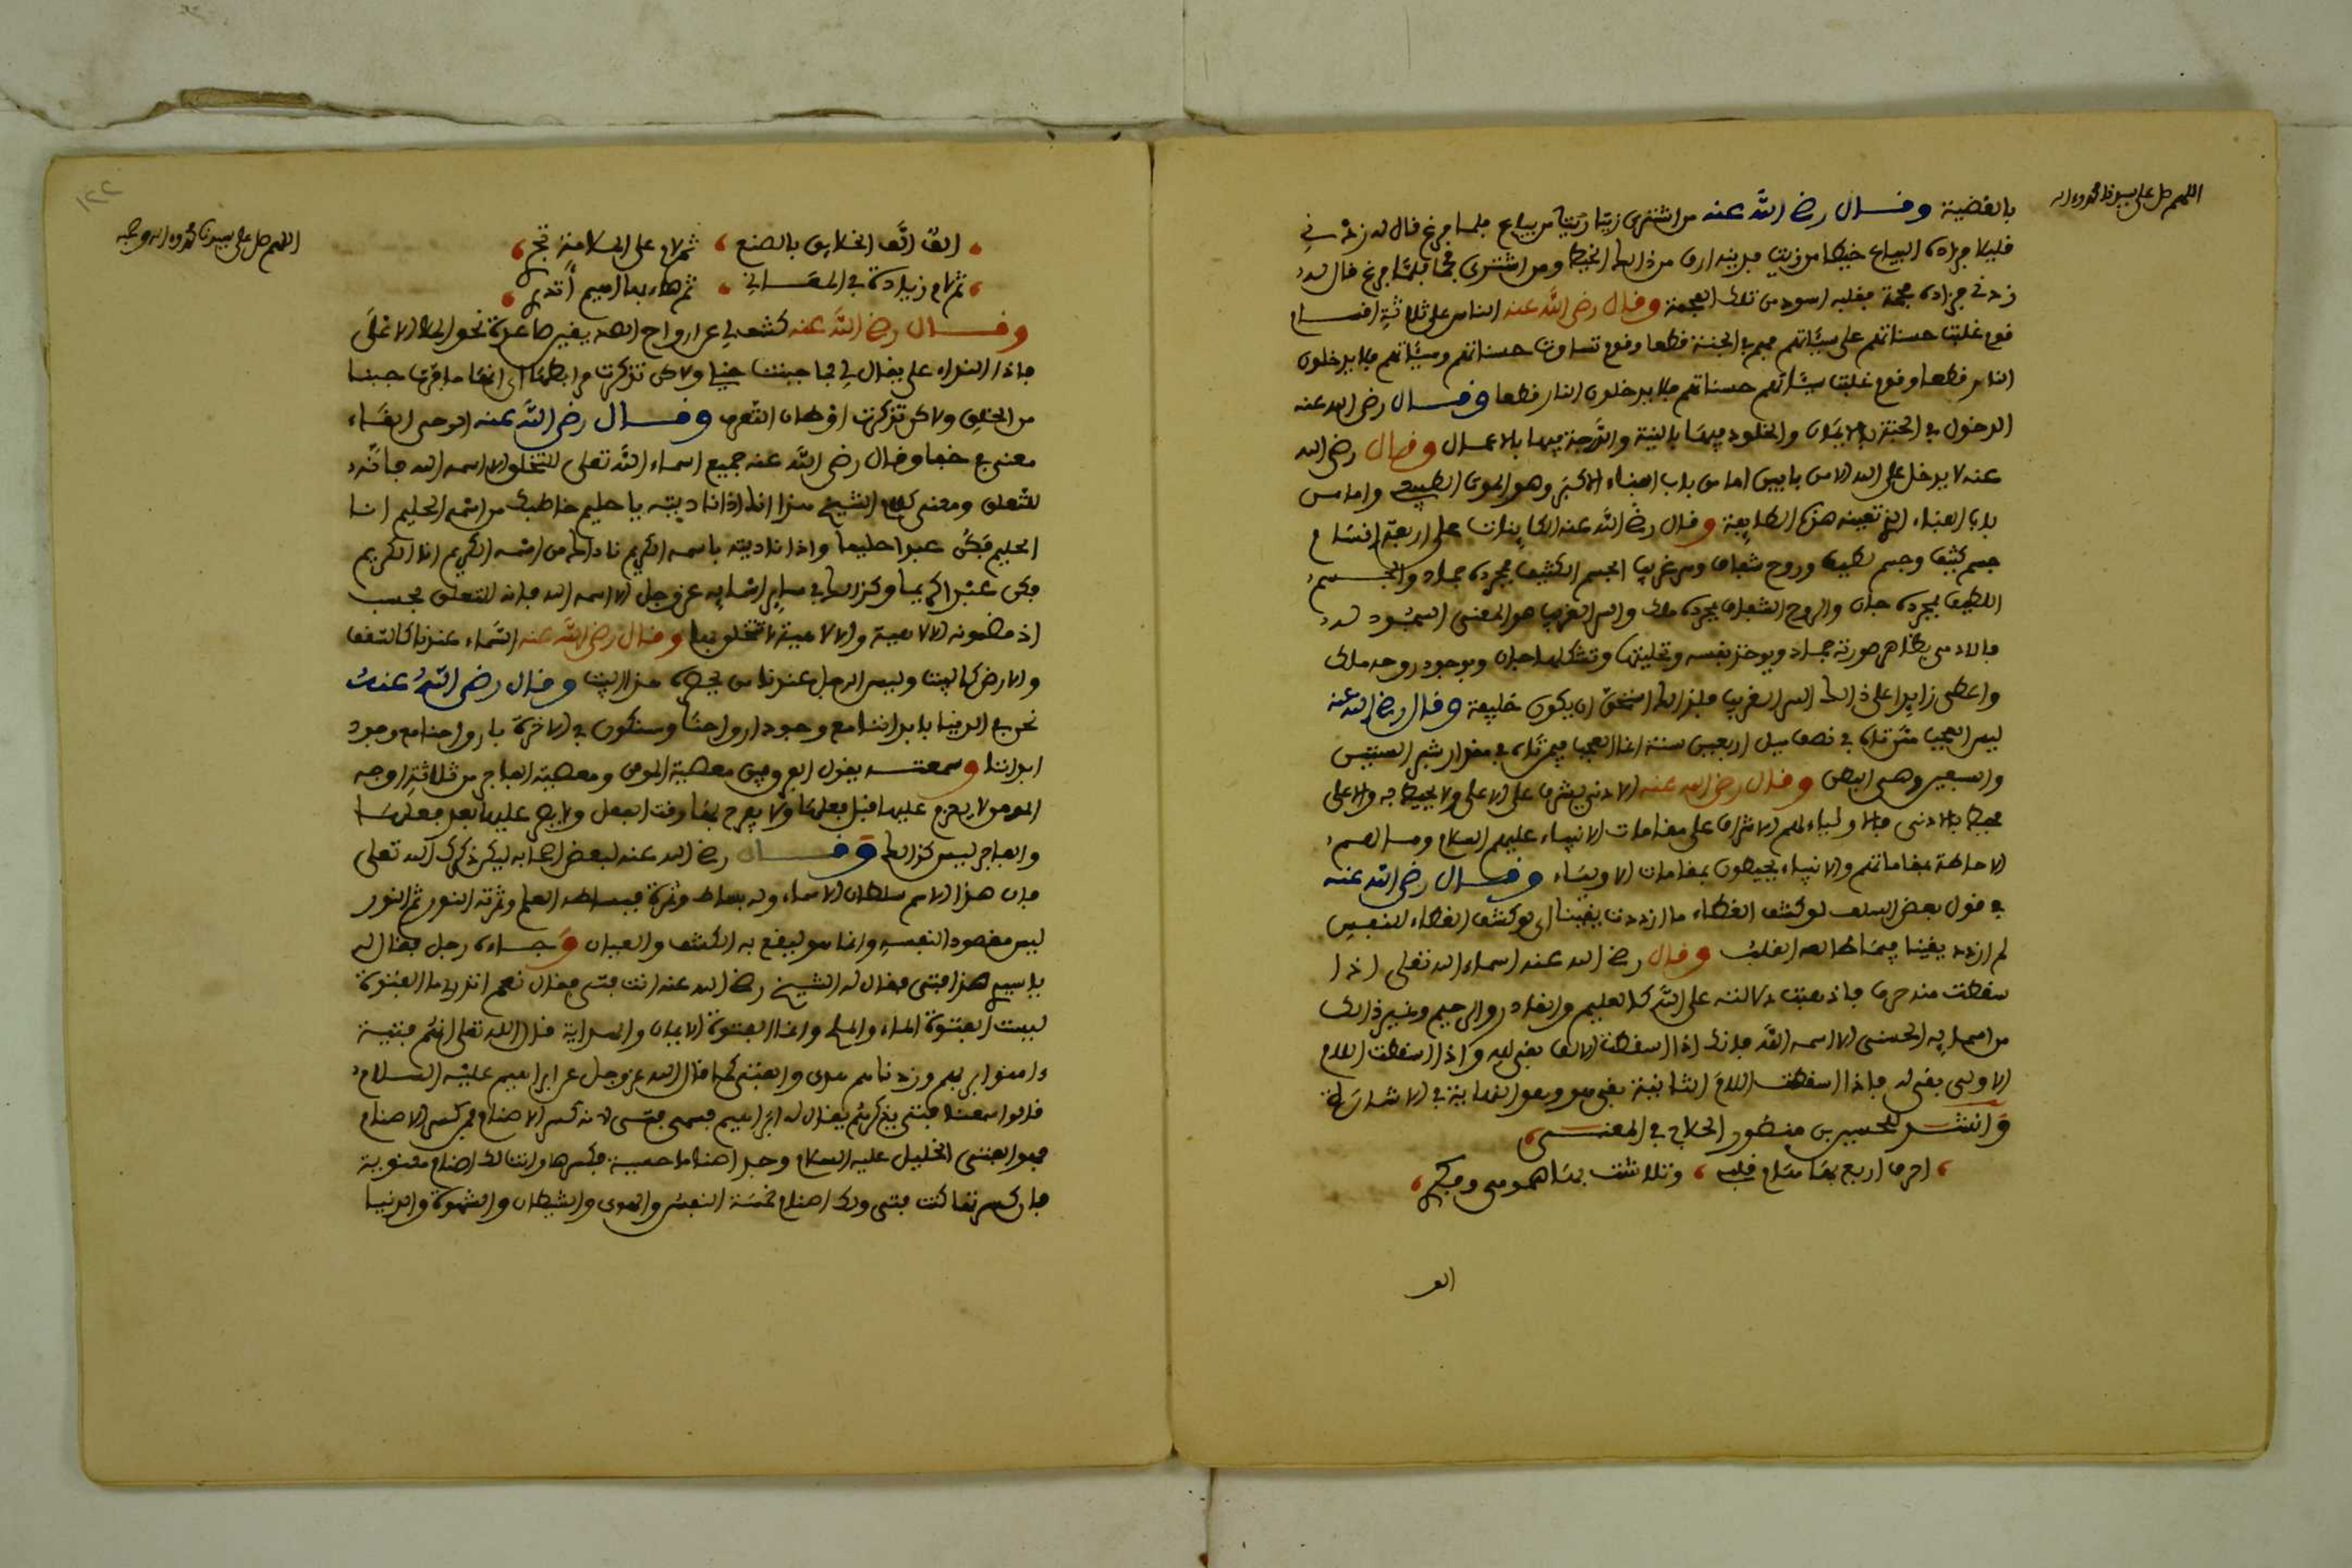 اللهم صل على سيدنا محمد وءاله
بالقضية وقال رضي الله عنه من اشترى زيتا من بياع فلما فرغ قال له زدني
قليلا فزاده البياع خيطا من زيت فدينه ارق من ذالك الخيط ومن اشترى فحما فلما فرغ قال له
زدني فزاده فحمة فقلبه اسود من تلك الفحمة وقال رضي الله عنه الناس على ثلاثة اقسام
قوم غلبت حسناتهم على سيئاتهم فهم في الجنة قطعا وقوم تساوت حسناتهم وسيئاتهم فلا يدخلون
النار قطعا وقوم غلبت سيئاتهم حسناتهم فلا يدخلون النار قطعا وقال رضي الله عنه
الدخول في الجنة بالايمان والخلود فيها بالنية والدرجة فيها بالاعمال وقال رضي الله
عنه لا يدخل على الله الا من بابين اما من باب الفناء الاكبر وهو الموت الطبيعي واما من
باب الفناء الذي تعينه هذه الطايفة وقال رضي الله عنه الكاينات على اربعة اقسام
جسم كثيف وجسم لطيف وروح شفاف وسر غريب الجسم الكثيف بمجرده جماد والجسم
اللطيف بمجرده جان والروح الشفاف بمجرده ملك والسر الغريب هو المعنى المسجود له
فالادمي بظاهر صورته جماد وبوجود نفسه وتخليها وتشكلها جان وبوجود روحه ملك
واعطي زايدا على ذالك السر الغريب فلذالك استحق ان يكون خليفة وقال رضي الله عنه
ليس العجب ممن تاه في نصف ميل اربعين سنة انما العجب فيمن تاه في مقدار شبر الستين
والسبعين وهي البطن وقال رضي الله عنه الادنى يشرف على الاعلى ولا يحيط به والاعلى
محيط بالادنى فالاولياء لهم الاشراف على مقامات الانبياء عليهم السلام وما لهم
الاحاطة بمقاماتهم والانبياء يحيطون بمقامات الاولياء وقال رضي الله عنه
في قول بعض السلف لو كشف الغطاء ما ازددت يقينا اي لو كشف الغطاء للنفس
لم ازدد يقينا فيما طالعه القلب وقال رضي الله عنه اسماء الله تعلى اذا
سقطت منه حرف فاذهبت دلالته على الله كالعليم والقادر والرحيم وغير ذالك
من اسمايه الحسنى الا اسمه الله فانك اذا اسقطت الالف بقي لله واذا اسقطت اللام
الاولى بقي له فاذا اسقطت اللام الثانية بقي هو وهو النهاية في الاشارة
وانشد للحسين بن منصور الحلاج في المعنى
احرف اربع بها هام قلبي، وتلاشت بها همومي وفكري
الف
١٢٢
اللهم صل على سيدنا محمد وءاله وصحبه
الف الف الخلايق بالصنع، ثم لام على الملامة تجري
ثم لام زيادة في المعاني، ثم هاء بها اهيم أتدري
وقال رضي الله عنه كشف لي عن ارواح الصديقين صاعدة نحو الملا الاعلى
فاذا النداء علي يقال لي ما جبنت خيلي ولاكن تذكرت مرابطها اي انها ما فرت جبنا
من الخلق ولاكن تذكرت اوطان التعرف وقال رضي الله عنه اوحى القاء
معنى في خفا وقال رضي الله عنه جميع اسماء الله تعلى للتخلق الا اسمه الله فانه
للتعلق ومعنى كلام الشيخ هذا انك اذا ناديته يا حليم خاطبك من اسمه الحليم انا
الحليم فكن عبدا حليما واذا ناديته باسمه الكريم ناداك من اسمه الكريم انا الكريم
فكن عبدا كريما وكذالك في ساير اسمايه عز وجل الا اسمه الله فانه للتعلق فحسب
اذ مضمونه الالاهية والالاهية لا تتخلق بها وقال رضي الله عنه السماء عندنا كالسقف
والارض كالبيت وليس الرجل عندنا من يحصره هذا البيت وقال رضي الله عنه
نحن في الدنيا بابداننا مع وجود ارواحنا وسنكون في الاخرة بارواحنا مع وجود
ابداننا وسمعته يقول الفرق بين معصية المومن ومعصية الفاجر من ثلاثة اوجه
المومن لا يعزم عليها قبل فعلها ولا يفرح بها وقت الفعل ولا يصر عليها بعد فعلها
والفاجر ليس كذالك وقال رضي الله عنه لبعض اصحابه ليكن ذكرك الله تعلى
فان هذا الاسم سلطان الاسماء وله بساط وثمرة فبساطه العلم وثمرته النور ثم النور
ليس مقصود النفسه وانما هو ليقع به الكشف والعيان وجاءه رجل فقال له
يا سيدي هذا فتى فقال له الشيخ رضي الله عنه انت فتى فقال نعم اتدري ما الفتوة
ليست الفتوة الماء والملح وانما الفتوة الايمان والهداية قال الله تعلى انهم فتية
ءامنوا بربهم وزدناهم هدى والفتى كما قال الله عز وجل عن ابراهيم عليه السلام
قالوا سمعنا فتى يذكرهم يقال له ابراهيم فسمي فتى لانه كسر الاصنام فمن كسر الاصنام
فهو الفتى الخليل عليه السلام وجد اصناما حسية فكسرها وانت لك اصنام معنوية
فان كسرتها كنت فتى ولك اصنام خمسة النفس والهوى والشيطان والشهوة والدنيا